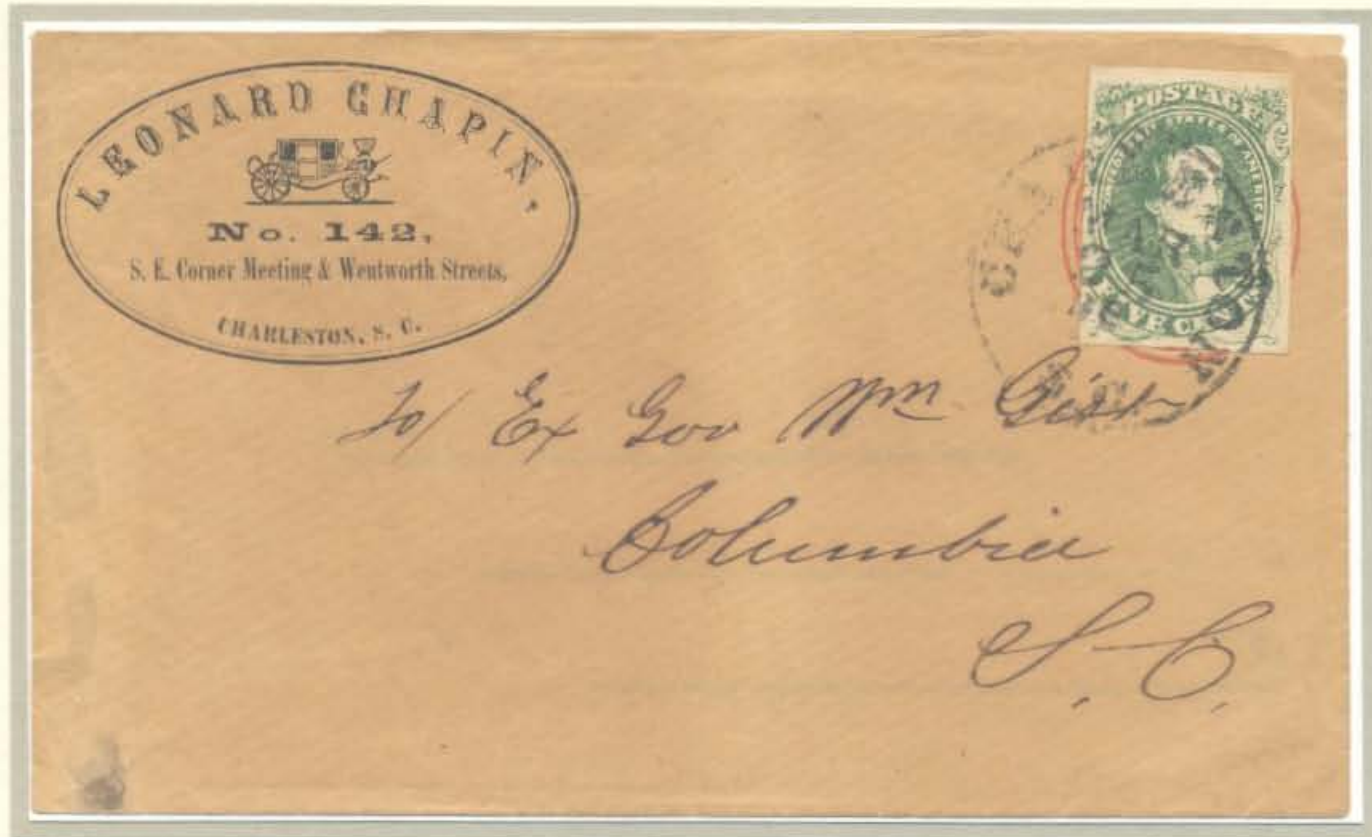 LEONARD CHAPIN,
No. 142,
S. E. Corner Meeting & Wentworth Streets,
CHARLESTON, S. C.
POSTAGE
STATES OF AMERICA
FIVE CENTS
To/ Ex Gov Wm Gist
Columbia
S. C.